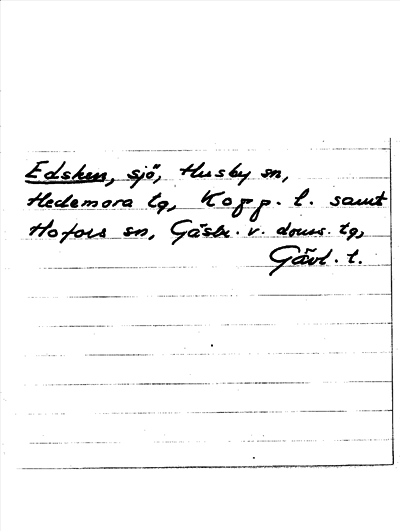 Edsken, sjö, Husby sn,
Hedemora tg, Kopp. l. samt
Hofors sn, Gästr. v. doms. tg,
Gävl. l.